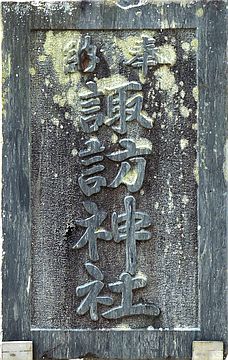 奉納
諏訪神社